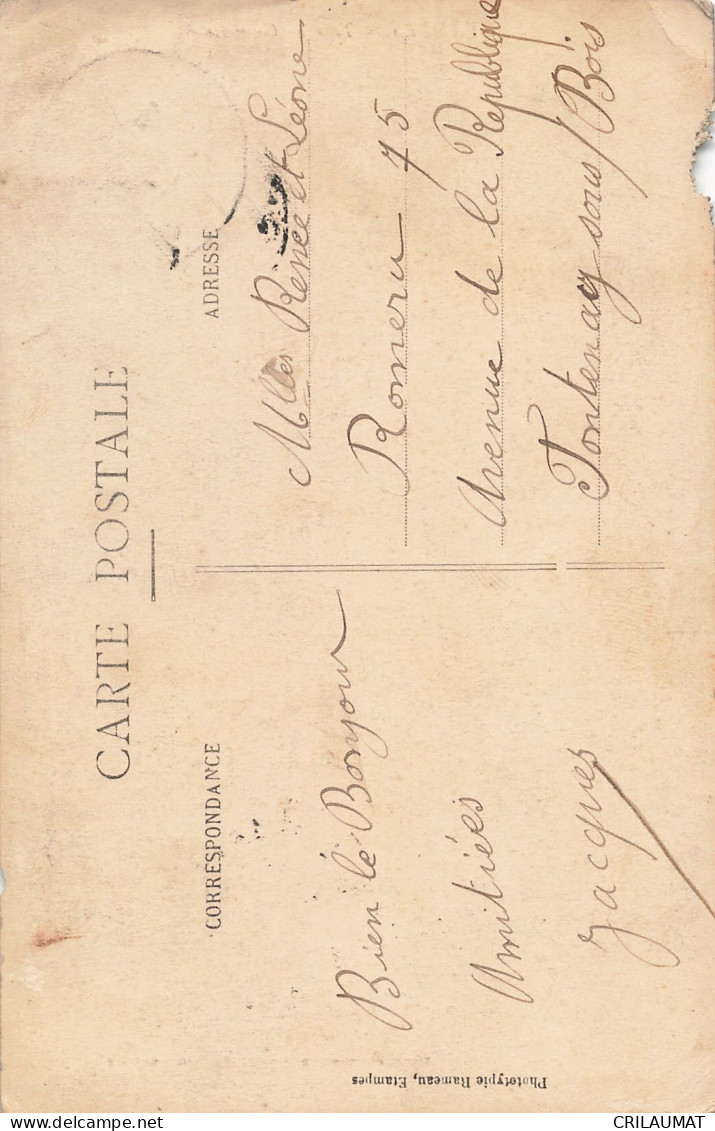 CARTE POSTALE
CORRESPONDANCE
Bien le Bonjour
Amitiées
Jacques
ADRESSE
Mlles Renée et Léone
Romeru 75
Avenue de la République
Fontenay sous/Bois
Phototypie Rameau, Etampes
CRILAUMAT